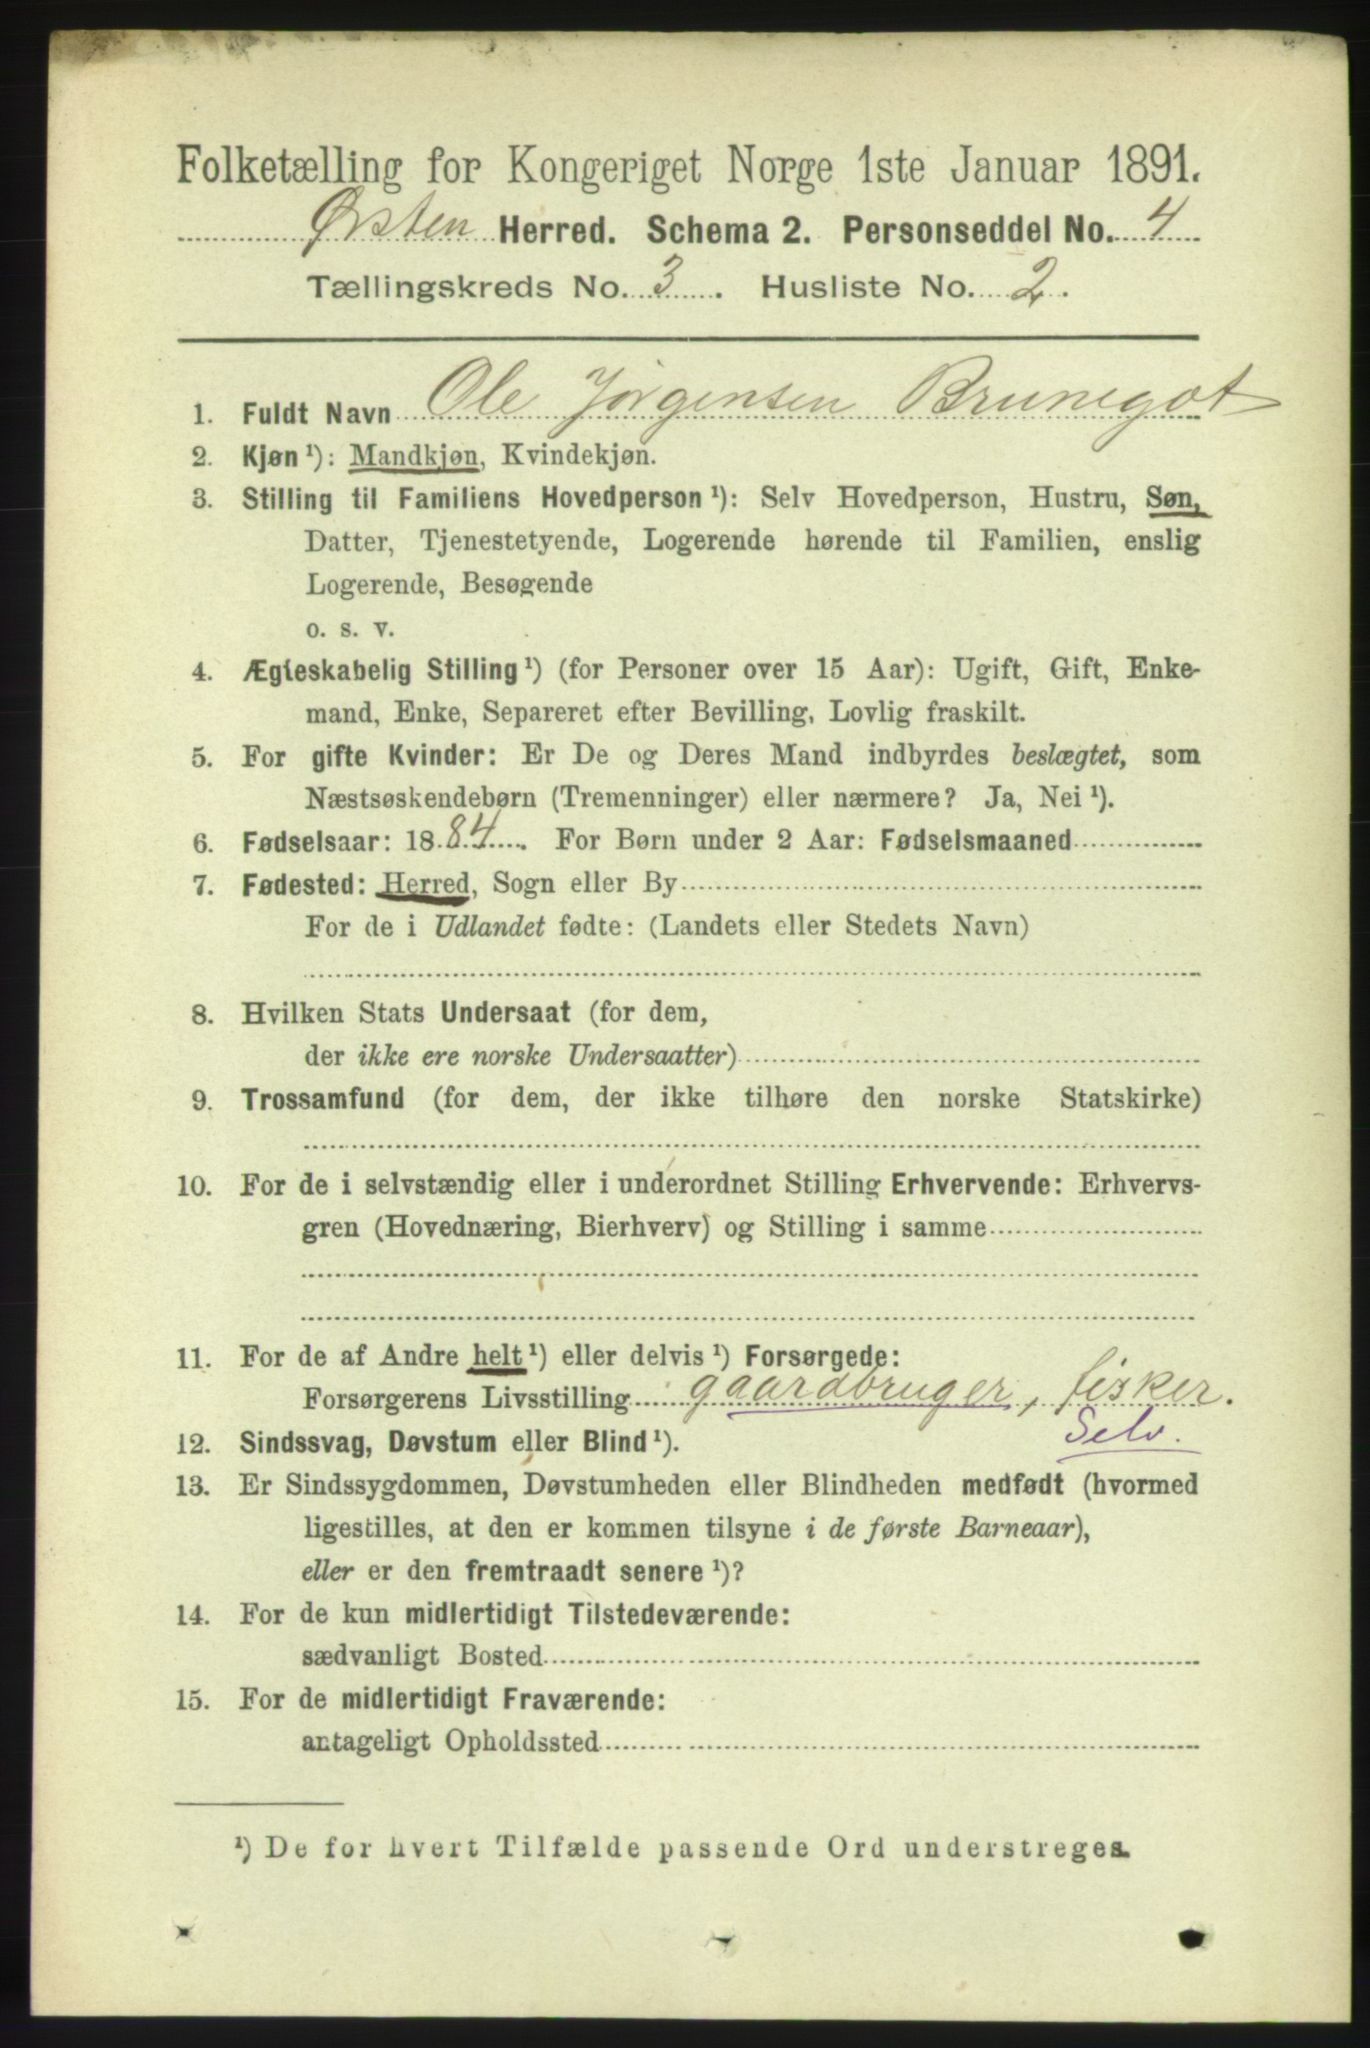 Folketælling for Kongeriget Norge 1ste Januar 1891.
Ørsten Herred. Schema 2. Personseddel No. 4
Tællingskreds No. 3. Husliste No. 2.
1. Fuldt Navn Ole Jørgensen Brunegot
2. Kjøn ¹): Mandkjøn, Kvindekjøn.
3. Stilling til Familiens Hovedperson ¹): Selv Hovedperson, Hustru, Søn,
Datter, Tjenestetyende, Logerende hørende til Familien, enslig
Logerende, Besøgende
o. s. v.
4. Ægteskabelig Stilling ¹) (for Personer over 15 Aar): Ugift, Gift, Enke-
mand, Enke, Separeret efter Bevilling, Lovlig fraskilt.
5. For gifte Kvinder: Er De og Deres Mand indbyrdes beslægtet, som
Næstsøskendebørn (Tremenninger) eller nærmere? Ja, Nei ¹).
6. Fødselsaar: 1884. For Børn under 2 Aar: Fødselsmaaned
7. Fødested: Herred, Sogn eller By
For de i Udlandet fødte: (Landets eller Stedets Navn)
8. Hvilken Stats Undersaat (for dem,
der ikke ere norske Undersaatter)
9. Trossamfund (for dem, der ikke tilhøre den norske Statskirke)
10. For de i selvstændig eller i underordnet Stilling Erhvervende: Erhvervs-
gren (Hovednæring, Bierhverv) og Stilling i samme
11. For de af Andre helt ¹) eller delvis ¹) Forsørgede:
Forsørgerens Livsstilling gaardbruger, fisker.
Selv.
12. Sindssvag, Døvstum eller Blind ¹).
13. Er Sindssygdommen, Døvstumheden eller Blindheden medfødt (hvormed
ligestilles, at den er kommen tilsyne i de første Barneaar),
eller er den fremtraadt senere ¹)?
14. For de kun midlertidigt Tilstedeværende:
sædvanligt Bosted
15. For de midlertidigt Fraværende:
antageligt Opholdssted
¹) De for hvert Tilfælde passende Ord understreges.